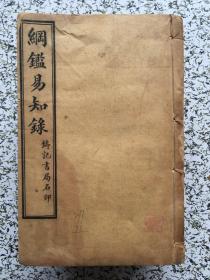 綱鑑易知錄
鑄記書局石印